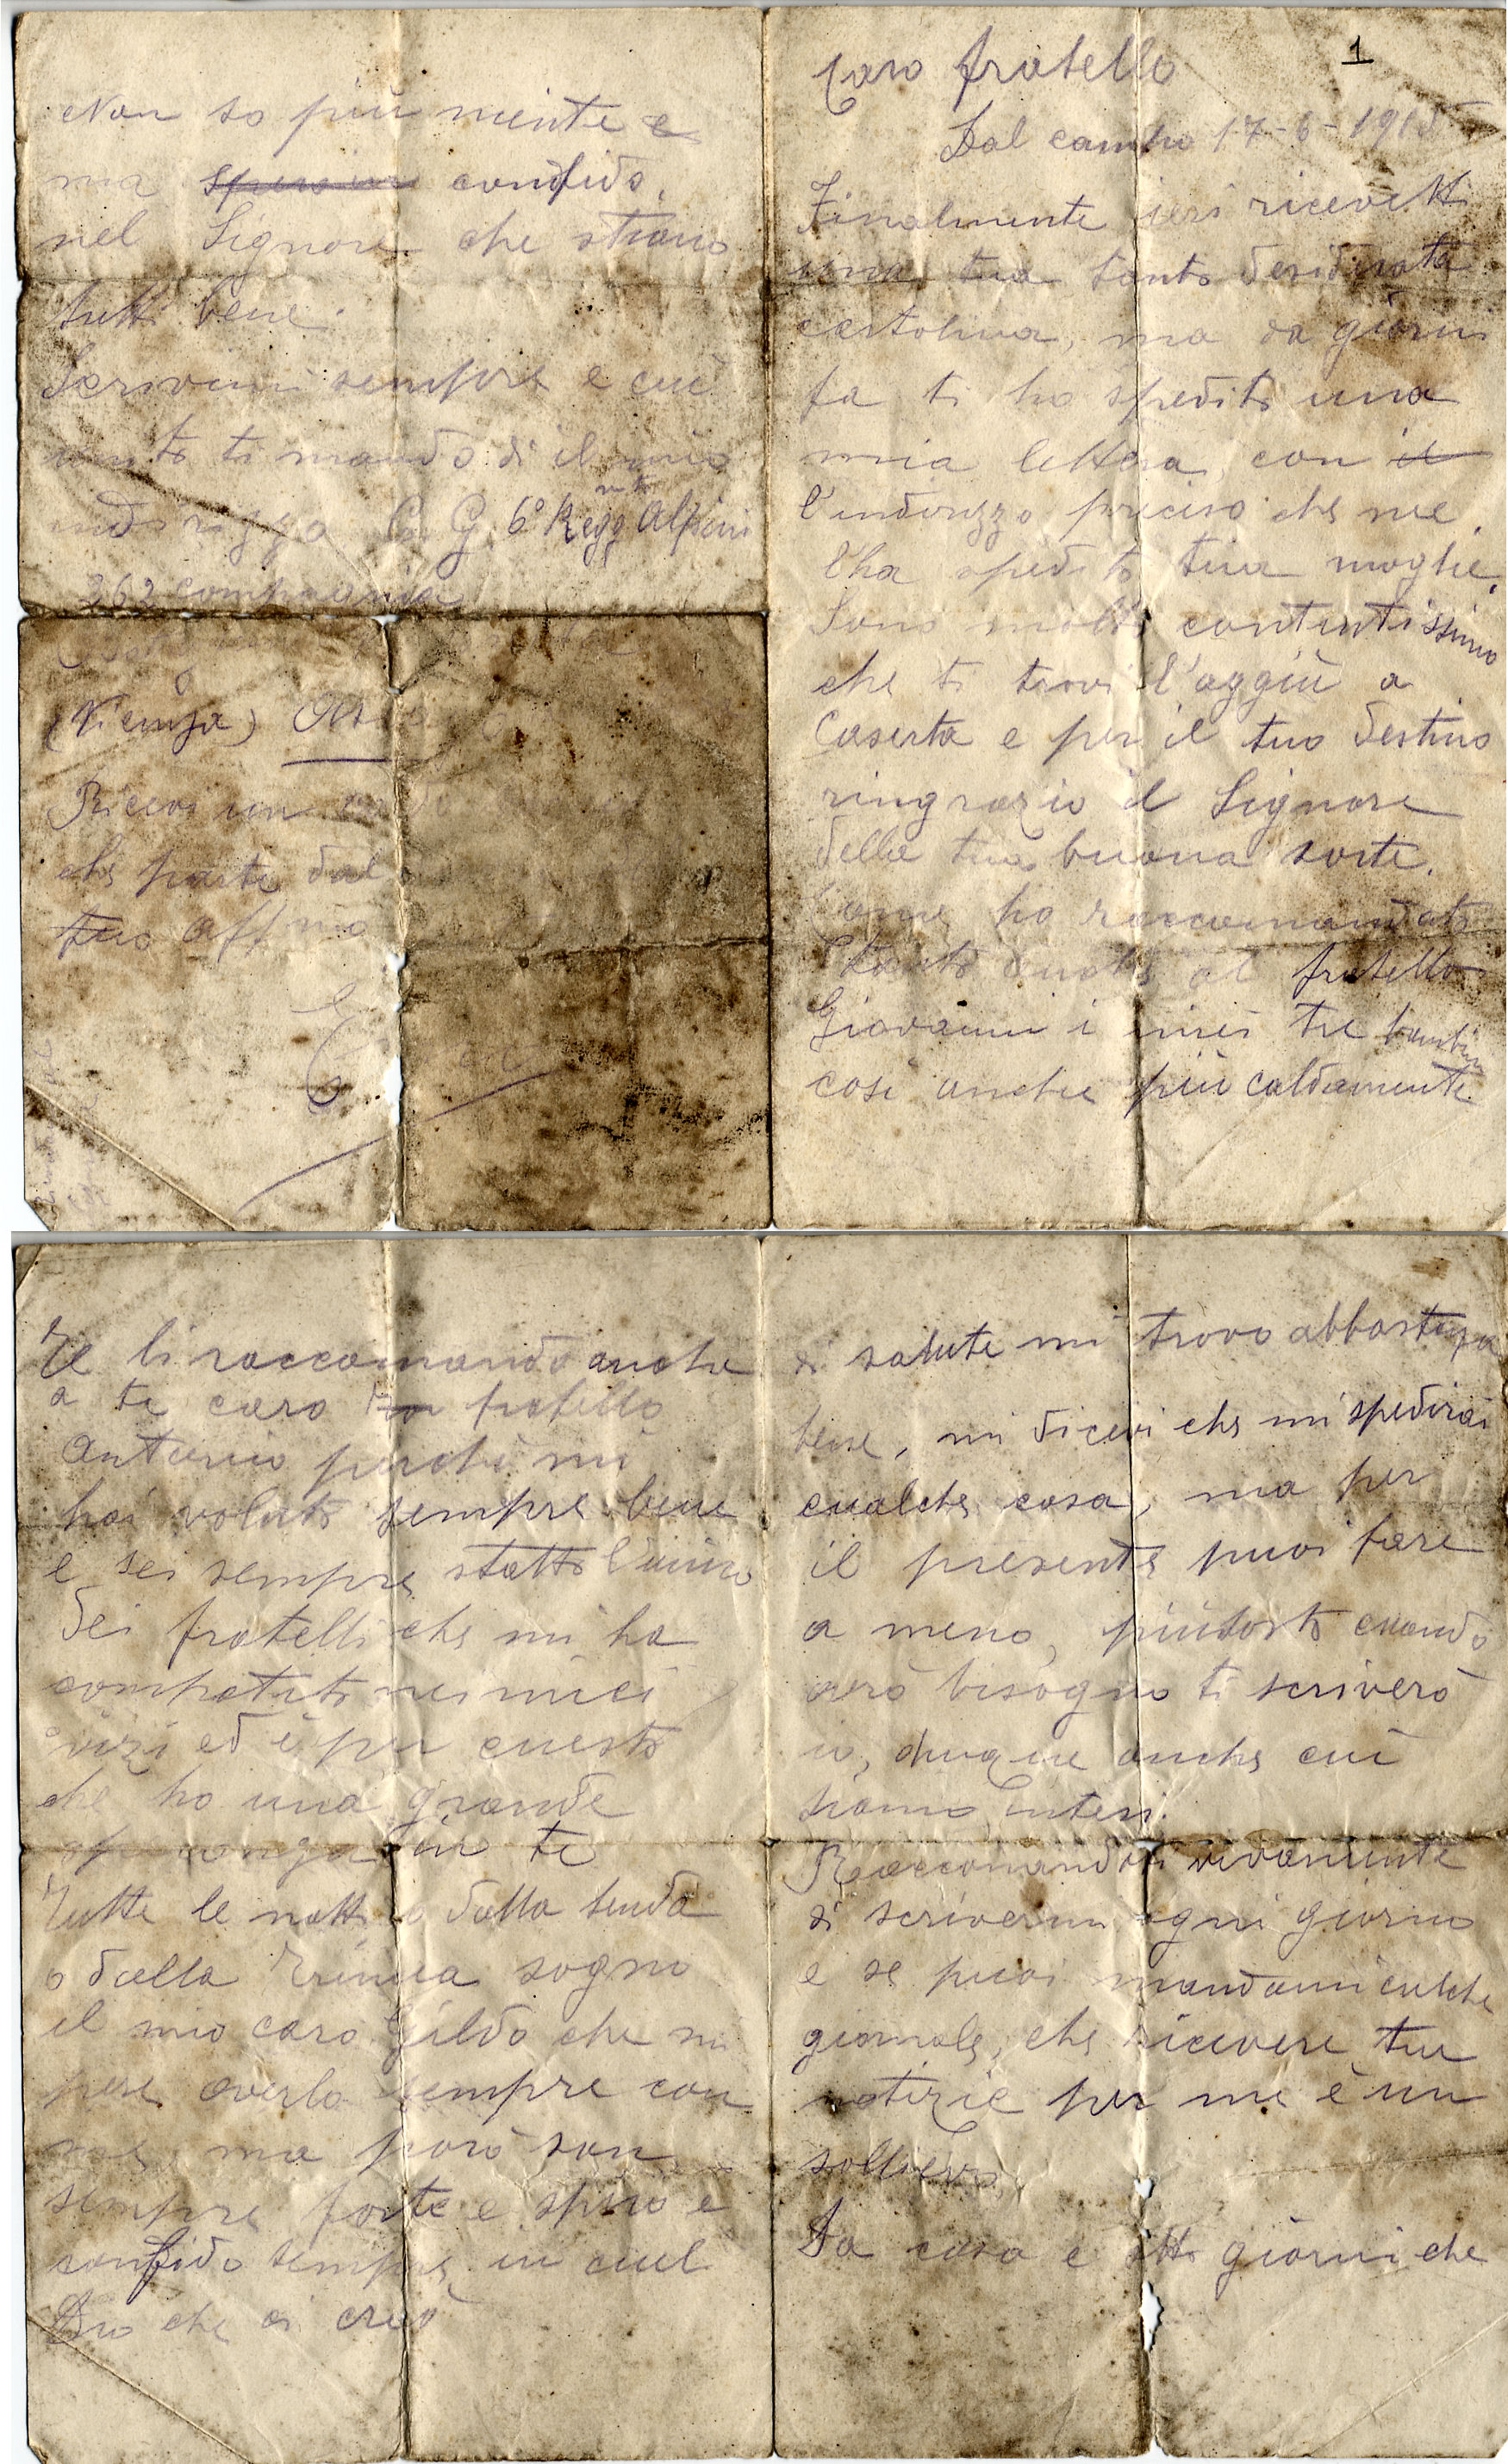 1
Caro fratello
Dal campo 17-6-1915
Finalmente ieri ricevetti
una tua tanto desiderata
cartolina, ma da giorni
fa ti ho spedito una
mia lettera con il
l'indirizzo preciso che me
l'ha spedito tua moglie.
Sono molto contentissimo
che ti trovi l'aggiù a
Caserta e per il tuo destino
ringrazio il Signore
della tua buona sorte.
Come ho raccomandato
tanto al fratello
Giovanni i miei tre bambini
così anche più caldamente
Te li raccomando anche
a te caro fratello
Antonio perchè mi
hai voluto sempre bene
e sei sempre statto l'unico
dei fratelli che mi ha
compatito nei miei
vizi ed è per cuesto
che ho una grande
in te
Tutte le notti dalla tenda
o dalla trincea sogno
il mio caro Gildo che mi
pare averlo sempre con
me, ma però son
sempre forte e spero e
confido sempre in cuel
Dio che ci creò
di salute mi trovo abbasteza
bene, mi dicevi che mi spedirai
cualche cosa, ma per
il presente puoi fare
a meno, piutosto cuando
avrò bisogno ti scriverò
io, dunque anche cui
siamo intesi.
Raccomandoti vivamente
di scrivermi ogni giorno
e se puoi mandami cualche
giornale, che ricevere tue
notizie per me è un
sollievo.
Da casa è otto giorni che
Non so più niente e
ma confido
nel Signore che stiano
tutti bene.
Scrivimi sempre e cuì
unito ti mando di il mio
indirizzo C. G. 6° Regg.mto Alpini
262 compagnia
(Vicenza)
Ricevi un
che parte dal
tuo Aff.mo